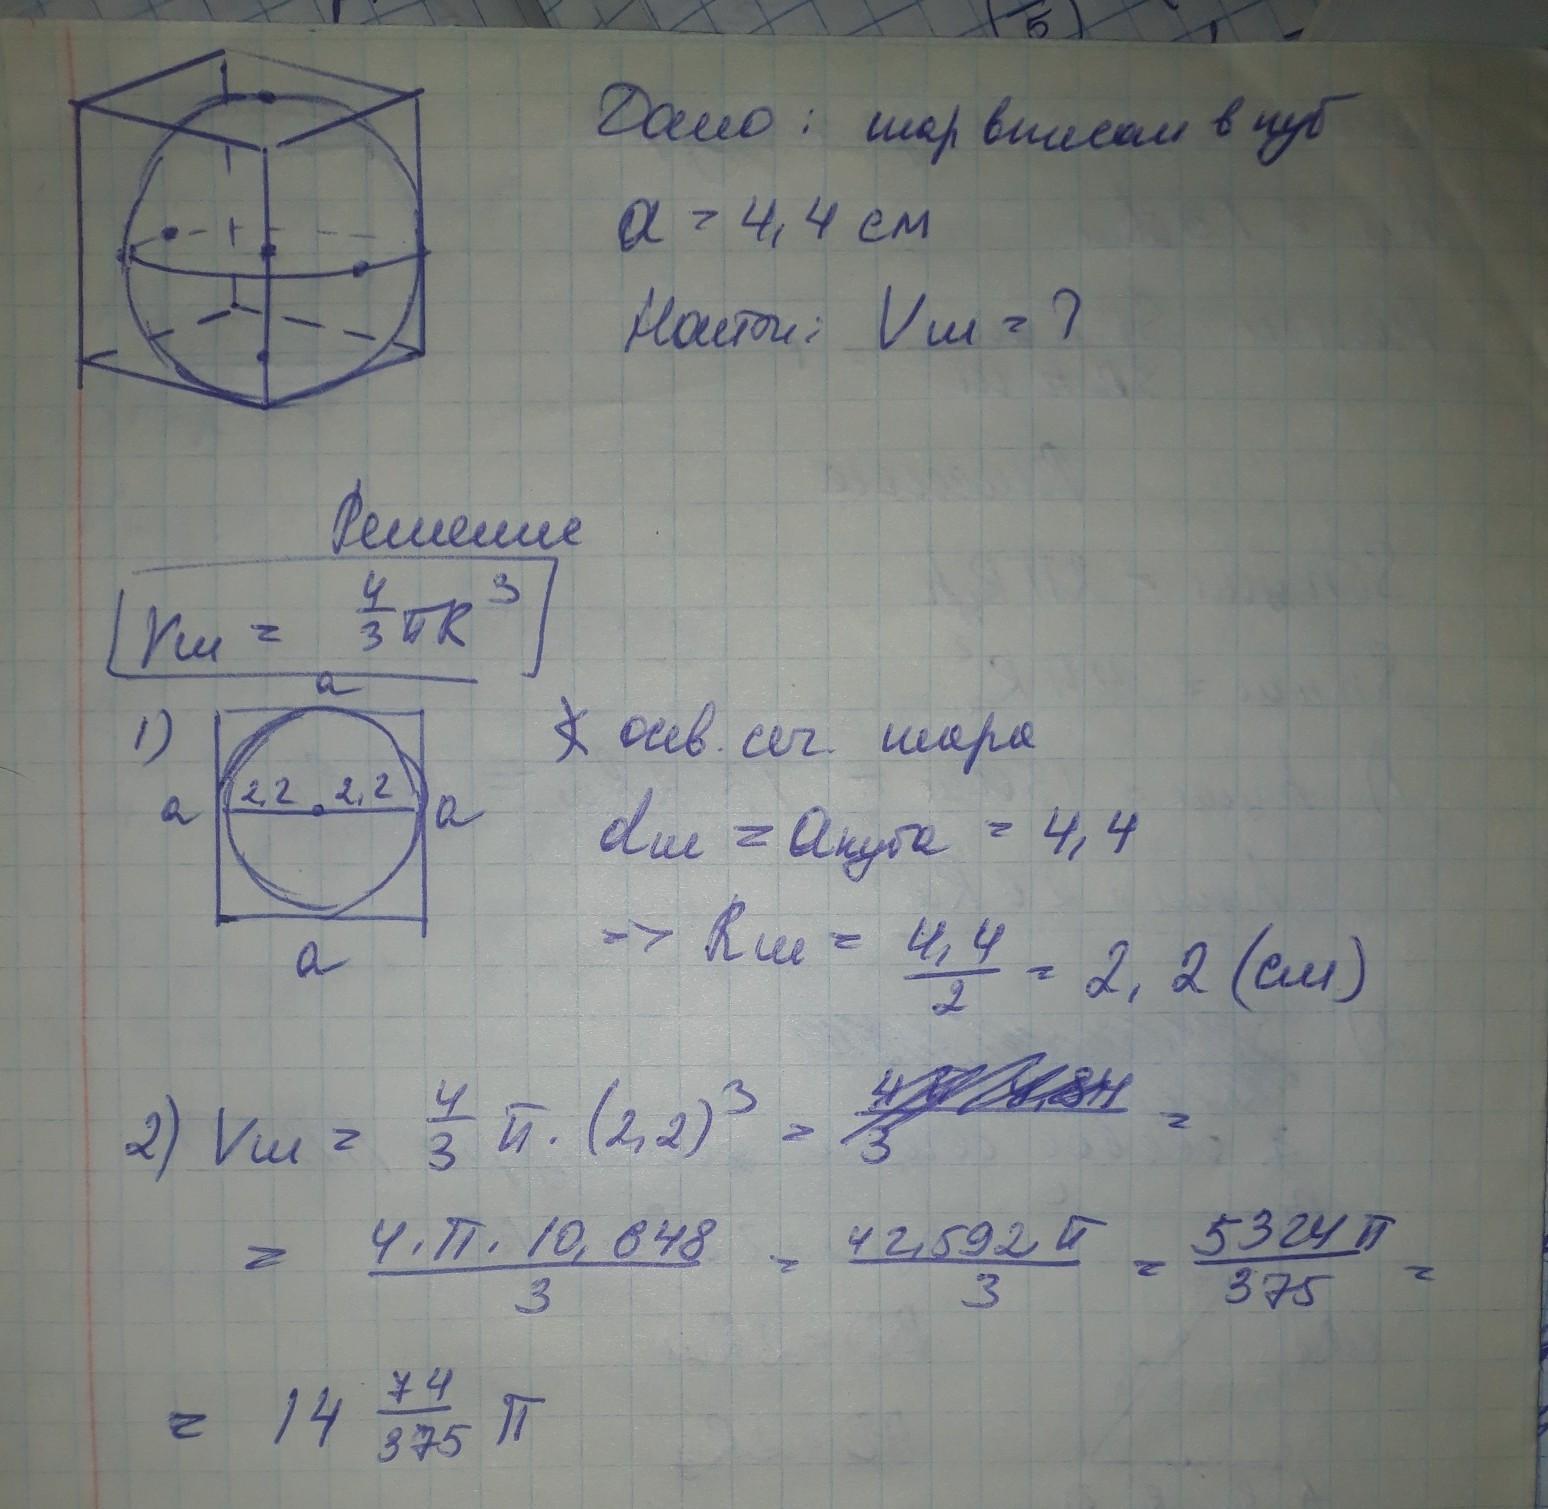 (5)
Дано: шар вписан в куб
a = 4,4 см
Найти: Vш = ?
Решение
Vш = 4/3 πR³
a
1)
a 2,2 2,2 a
a
осев. сеч. шара
dш = aкуба = 4,4
=> Rш = 4,4/2 = 2,2 (см)
2) Vш = 4/3 π · (2,2)³ = =
= 4·π·10,648/3 = 42,592π/3 = 5324π/375 =
= 14 74/375 π